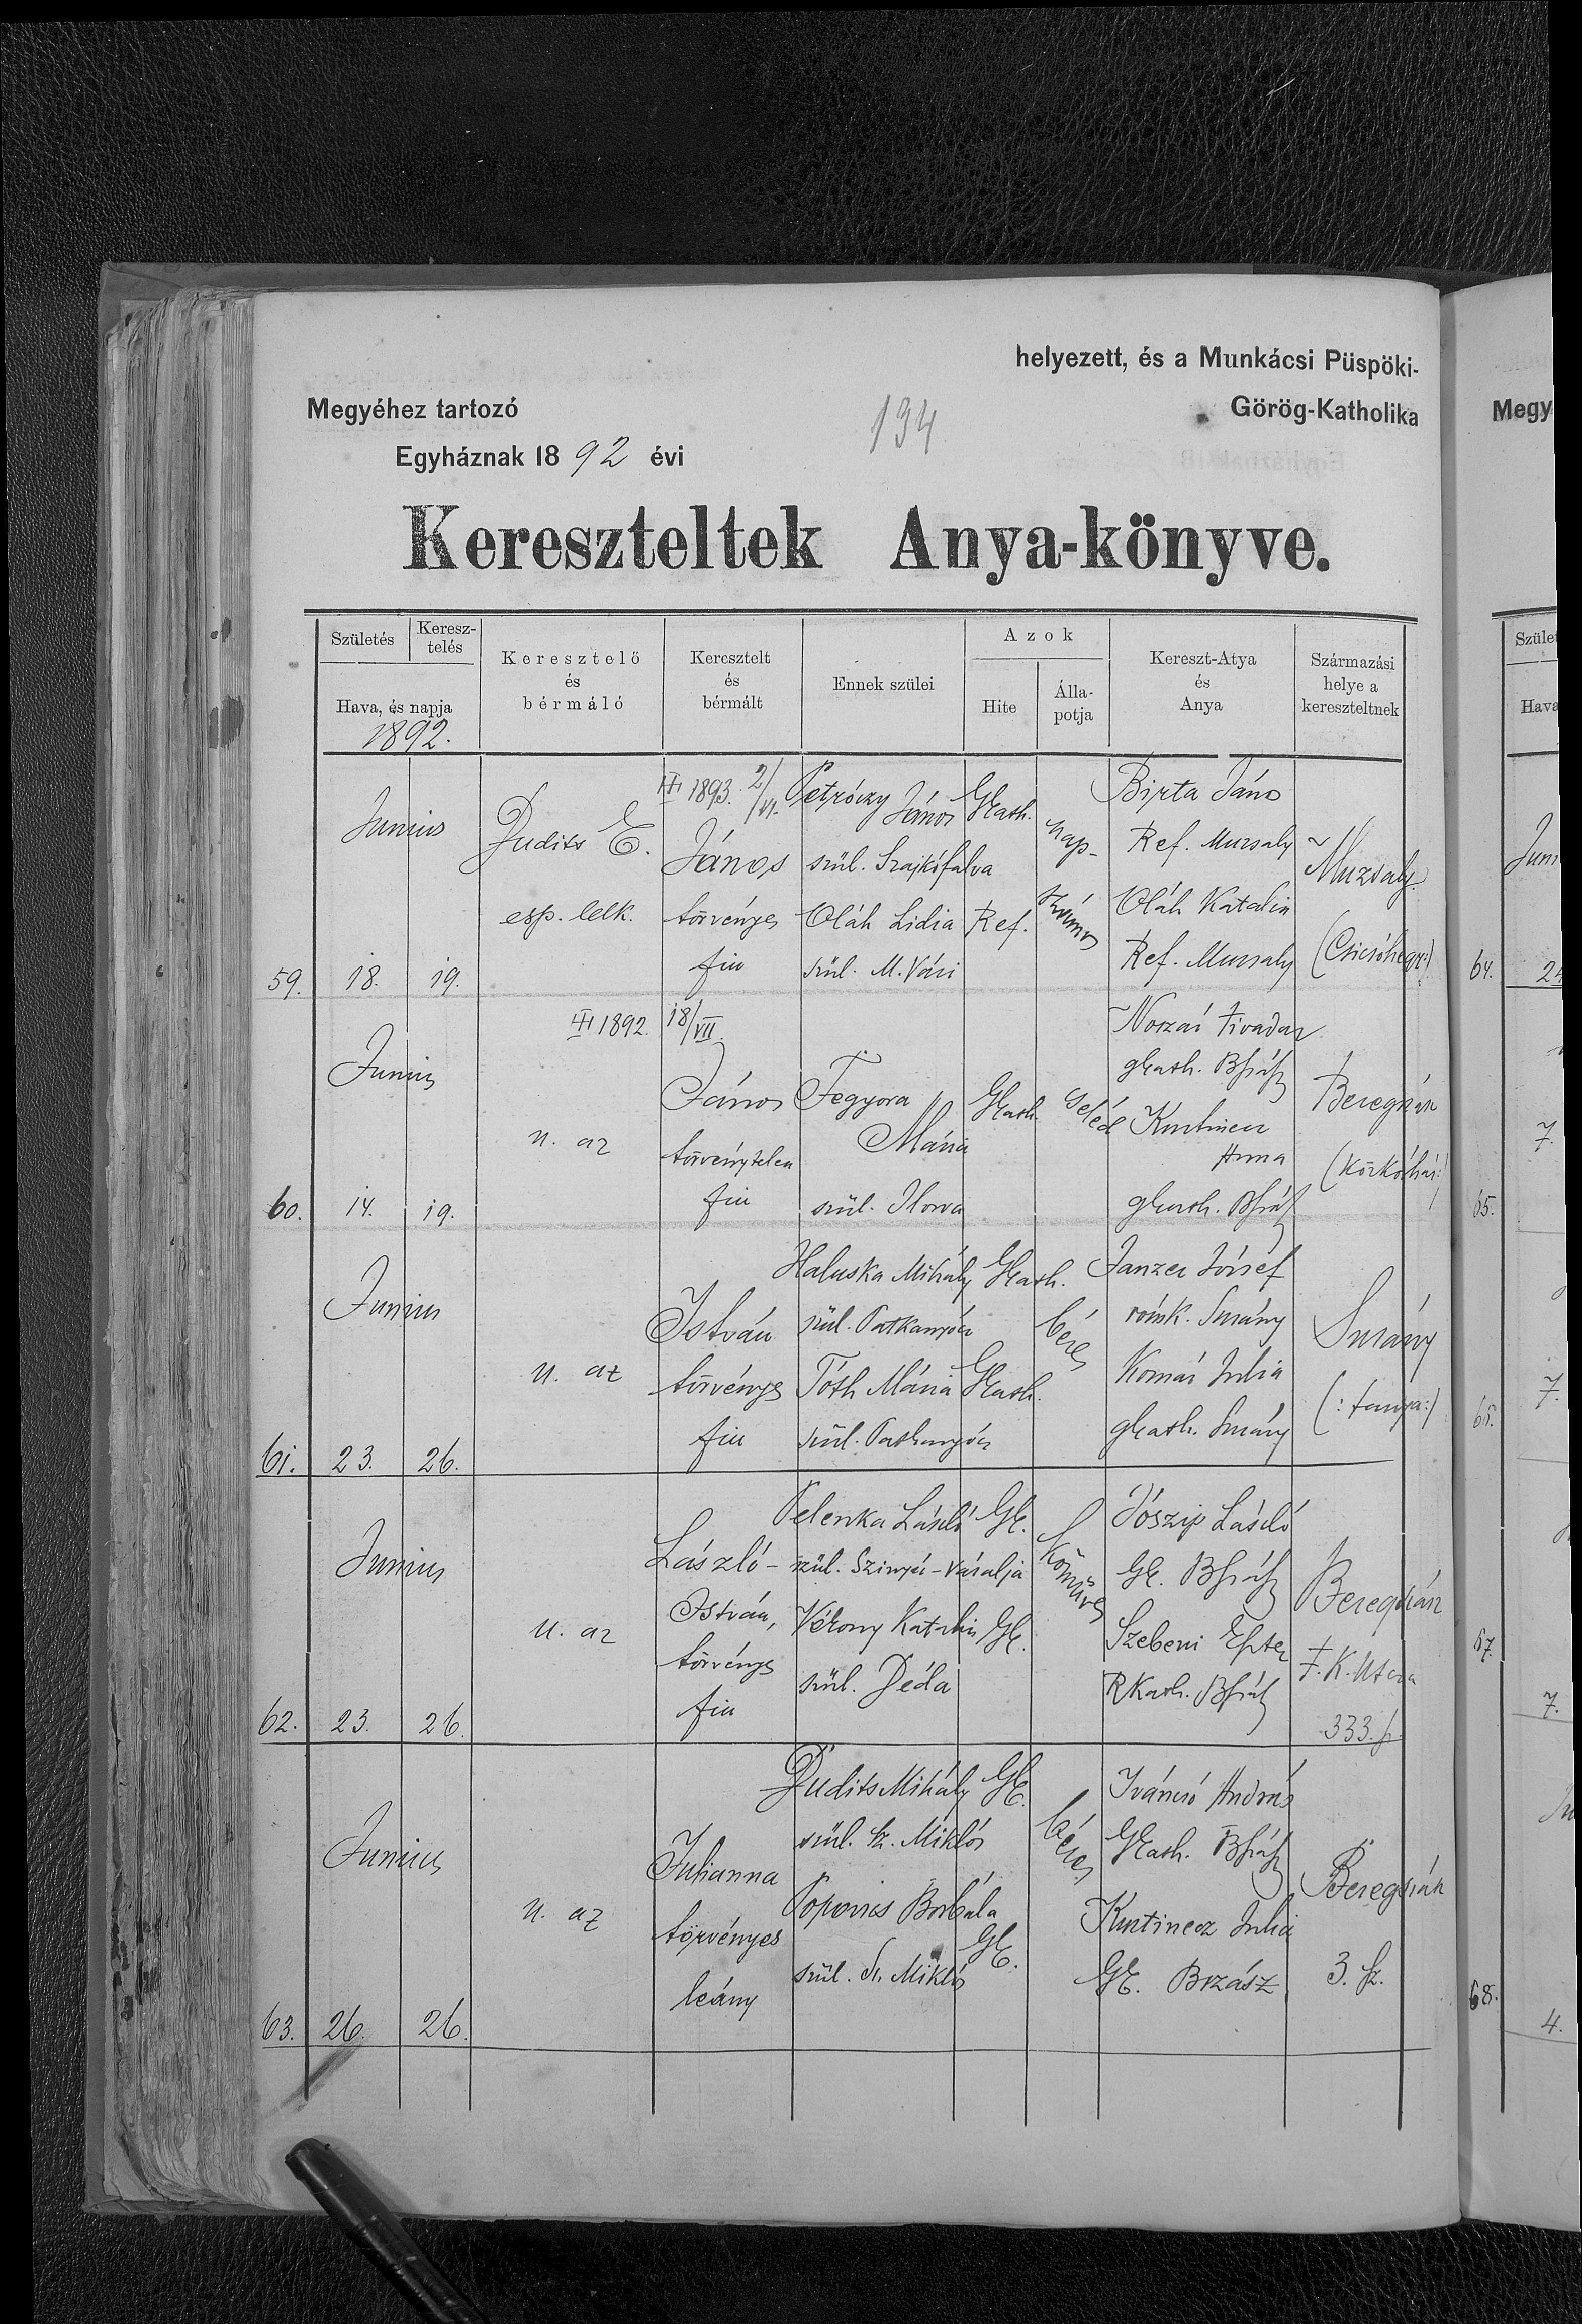 helyezett, és a Munkácsi Püspöki-
Megyéhez tartozó 134 Görög-Katholika
Egyháznak 1892 évi
Kereszteltek Anya-könyve.
Születés Keresz-telés
Hava, és napja
1892.
Keresztelő és bérmáló
Keresztelt és bérmált
Ennek szülei
Azok
Hite
Álla-potja
Kereszt-Atya és Anya
Származási helye a kereszteltnek
59.
Junius
18. 19.
Dudits E.
esp. lelk.
1893. 2/VI.
János
törvényes
fiu
Petróczy János
szül. Szajkófalva
Oláh Lidia
szül. M. Vári
GKath.
Ref.
nap-
számos
Birta Jáno
Ref. Muzsaly
Oláh Katalin
Ref. Muzsaly
Muzsaly
(Csicsóhegy:)
60.
Junius
14. 19.
u. az
1892. 18/VII.
János
törvénytelen
fiu
Fegyora
Mária
szül. Ilosva
GKath.
cseléd
Noszái Tivadar
gkath. Bszász
Kurtinecz
Anna
gkath. Bszász
Beregszász
61.
Junius
23. 26.
u. az
István
törvényes
fiu
Haluska Mihály
szül. Patkanyócz
Tóth Mária
szül. Patkanyócz
GKath.
GKath.
béres
Janzer József
rómk. Surány
Komár Julia
gkath. Surány
Surány
(:tanya:)
62.
Junius
23. 26.
u. az
László-
István,
törvényes
fiu
Pelenka László
szül. Szinyér-Váralja
Vékony Katalin
szül. Déda
GK.
GK.
Kőműves
Jószip László
GK. Bszász
Szebeni Eszter
RKath. Bszász
Beregszász
F. K. Utcza
333. sz.
63.
Junius
26. 26.
u. az
Julianna
törvényes
leány
Dudits Mihály
szül. Sz. Miklós
Popovics Borbála
szül. Sz. Miklós
GK.
GK.
béres
Iváncsó András
GKath. Bszász
Kurtinecz Julia
GK. Bszász
Beregszász
3. sz.
Megy
Szület
Hava
Juni
64.
65.
66.
67.
68.
24
7.
7.
7.
4.